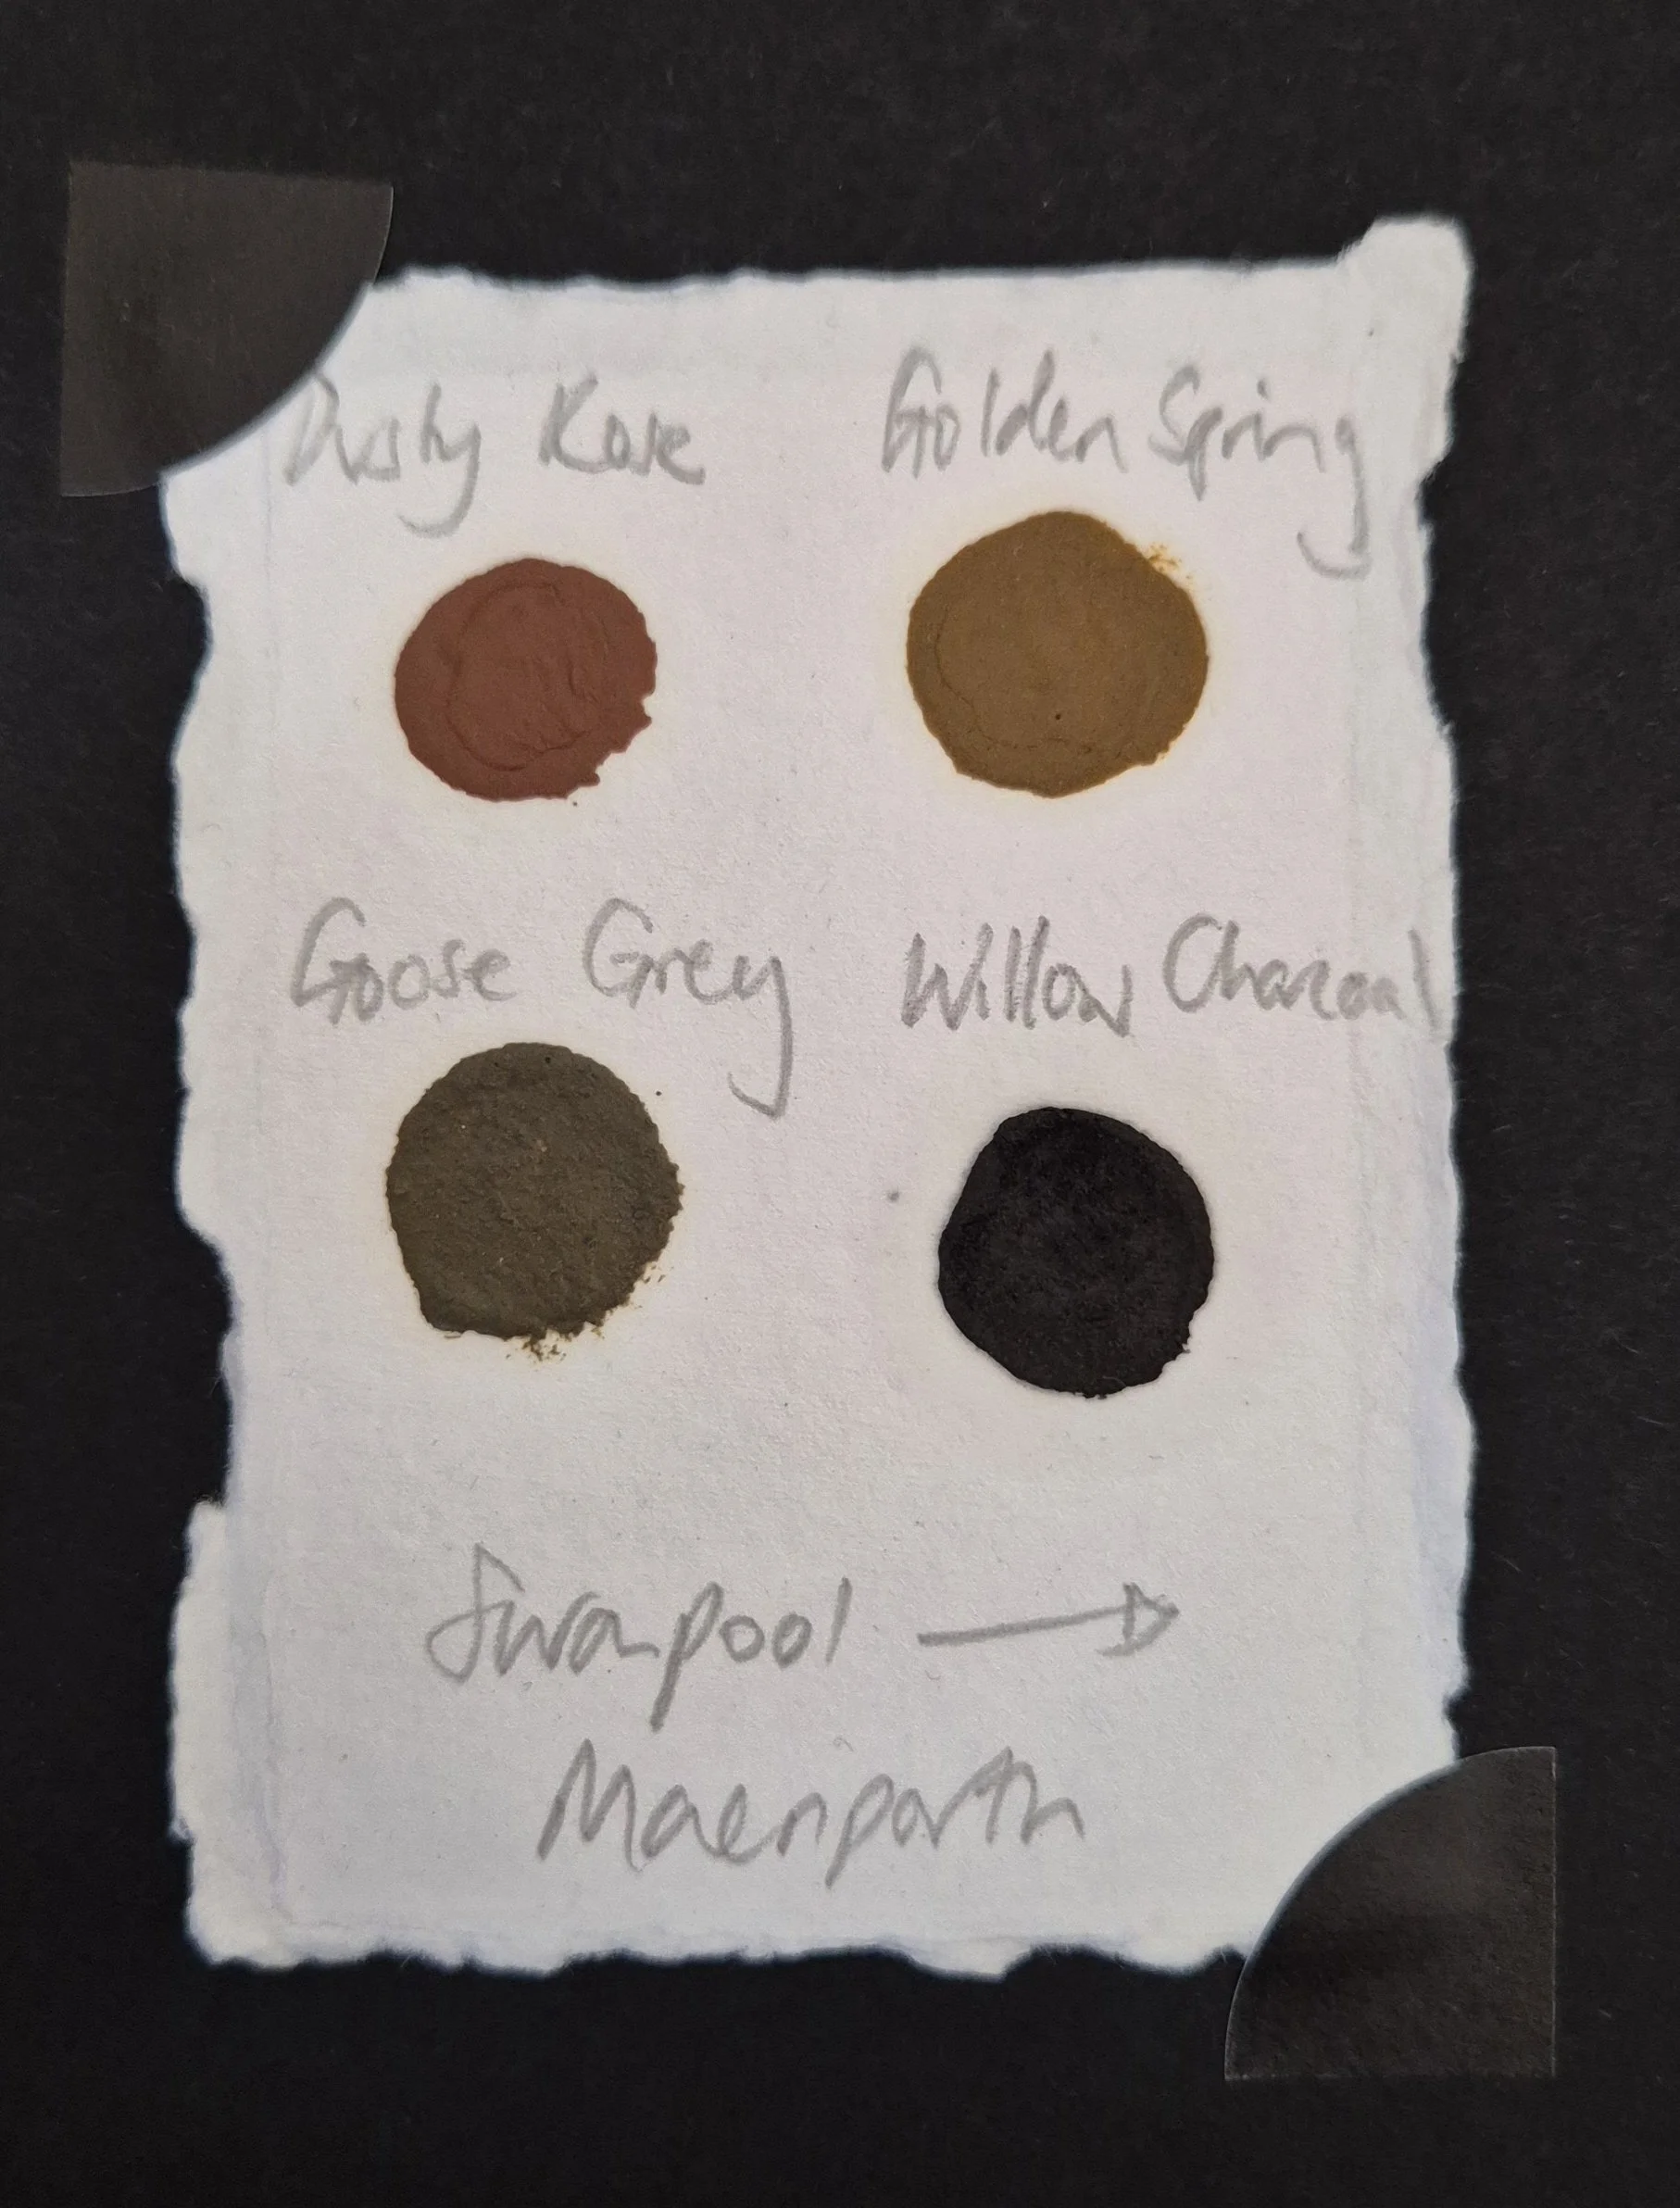 Dusty Rose Golden Spring
Goose Grey Willow Charcoal
Swanpool →
Maenporth